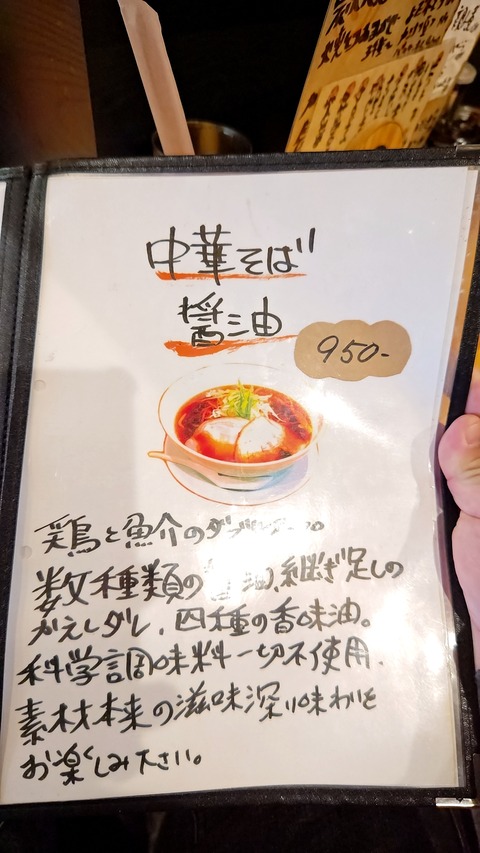 中華そば
醤油
950-
鶏と魚介のダブル
数種類の 油、継ぎ足しの
かえしダレ、四種の香味油。
科学調味料一切不使用、
素材本来の滋味深い味わいを
お楽しみ下さい。